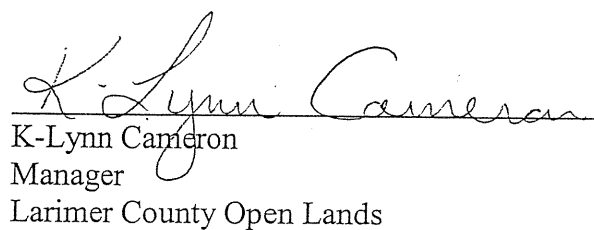 K-Lynn Cameron
K-Lynn Cameron
Manager
Larimer County Open Lands